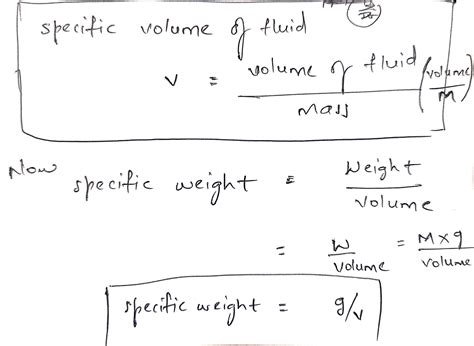 specific volume of fluid
v = volume of fluid / Mass (volume / M)
Now specific weight = Weight / volume
= W / volume = M×g / volume
specific weight = g/v